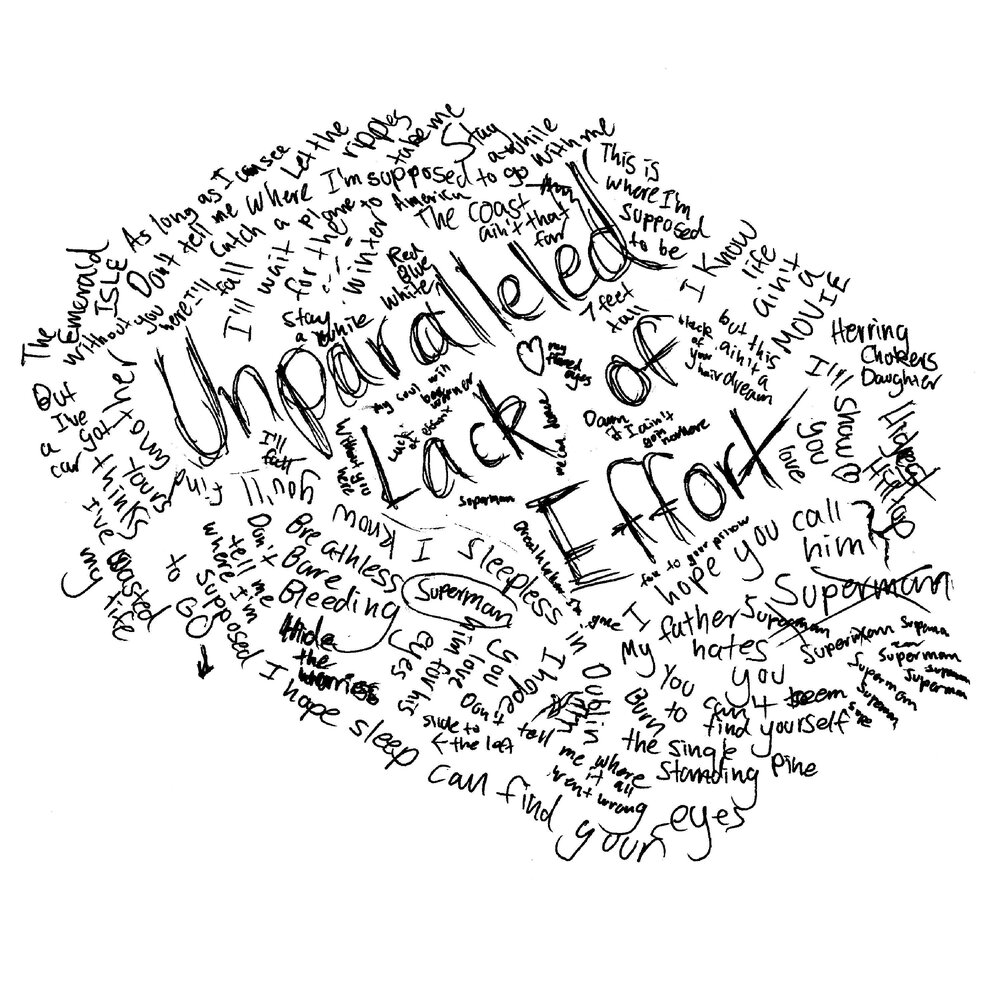 Unparalleled
Lack of
Effort
As long as I can see
Let the
ripples
take me
Stay
awhile
Don't tell me where I'm supposed to go with me
Catch a plane to America
The coast
ain't that
far
This is
where I'm
supposed
to be
The
Emerald
ISLE
without you
here I'll
fall
I'll wait
for the
winter
Red
Blue
White
Stay
a while
7 feet
tall
I know
life
ain't a
MOVIE
but this
ain't a
dream
black
of
your
hair
Herring
Chokers
Daughter
I'll show
you
love
But
I've
got her
a
car
thinks
I've
wasted
my
life
to my
yours
I'll
fall
you'll
find
my soul will
be
warmer
Without you
here
Damn
it I ain't
going
nowhere
Superman
I know
Breathless
Bare
Bleeding
Don't
tell me
where I'm
supposed
to
GO
Superman
Sleepless
in Dublin
I hope
you love
him for his
eyes
Hide
the
worries
I hope sleep can find your eyes
slide to
the left
Don't tell me where
it all
went wrong
I hope you call
him
far to your pillow
My father
hates
you
Superman
Superman
Superman
Superman
Superman
Superman
Superman
Superman
You can't seem
to find yourself
Burn
the single
standing pine